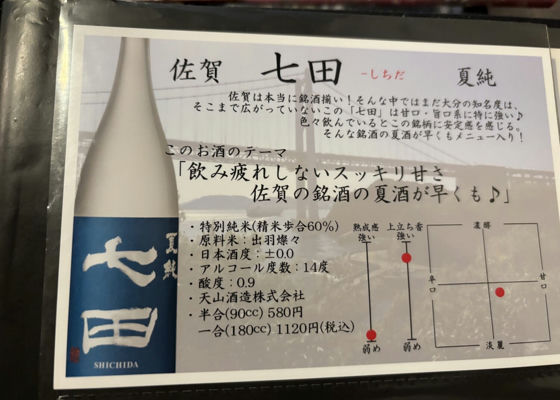 佐賀 七田 -しちだ 夏純
佐賀は本当に銘酒揃い！そんな中ではまだ大分の知名度は、
そこまで広がっていないこの「七田」は甘口・旨口系に特に強い♪
色々飲んでいるとこの銘柄に安定感を感じる。
そんな銘酒の夏酒が早くもメニュー入り！
このお酒のテーマ
「飲み疲れしないスッキリ甘さ
佐賀の銘酒の夏酒が早くも♪」
・特別純米(精米歩合60%)
・原料米：出羽燦々
・日本酒度：±0.0
・アルコール度数：14度
・酸度：0.9
・天山酒造株式会社
・半合(90cc) 580円
一合(180cc) 1120円(税込)
熟成感
強い
弱め
上立ち香
強い
弱め
濃醇
辛口
甘口
淡麗
夏純
七田
SHICHIDA